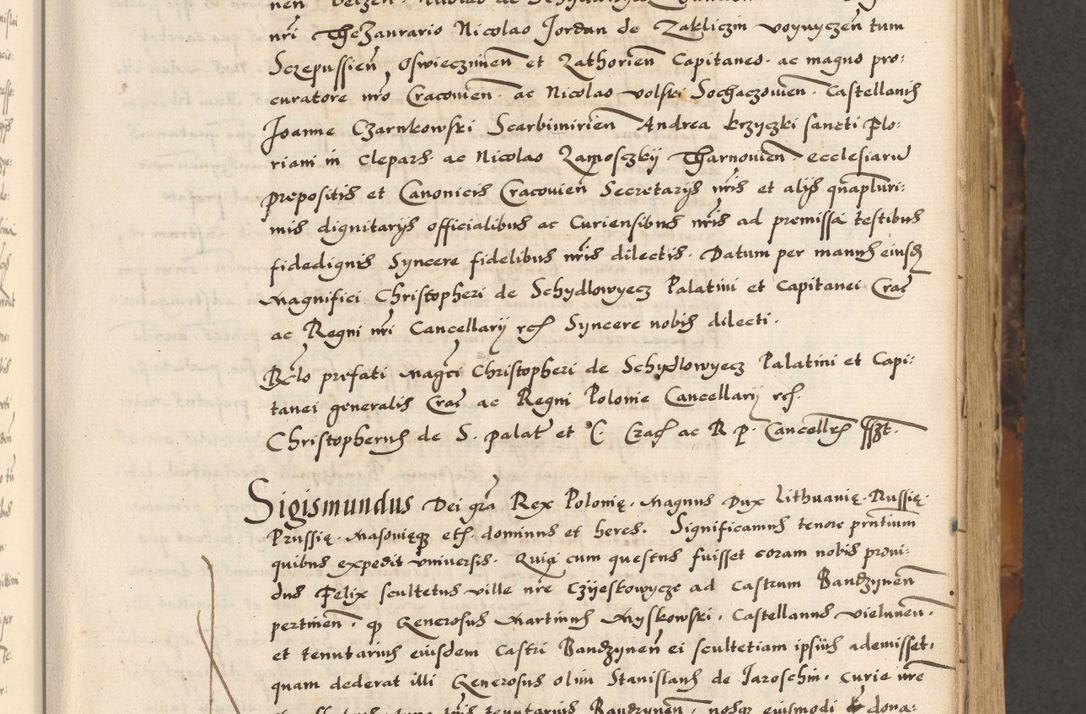 nri Thezaurario Nicolao Jordan de Zakliczin voyvyczen tum
Sczepussien Oswieczimen et Zathorien Capitaneo ac magno pro:
curatore nro Cracovien. ac Nicolao volski Sochaczovien. Castellanis
Joanne Czarnkowski Scarbimirien Andrea krzyczki sancti flo:
riani in Clepars ac Nicolao Zamosczkij Tharnovien. ecclesiaru
prepositis et Canonicis Cracovien Secretarijs nris et alijs qnapluri:
mis dignitarijs officialibus ac Curiensibus nris ad premissa testibus
fidedignis Syncere fidelibus nris dilectis. Datum per manus eiusdem
magnifici Christopheri de Schydlowyecz Palatini et Capitanei Crac
ac Regni nri Cancellarij rc Syncere nobis dilecti.
Relo prefati magci Christopheri de Schydlowyecz Palatini et Capi:
tanei generalis Crac ac Regni Polonie Cancellarij rc.
Christopherus de S. palat et C Crac ac R P. Cancellrs sszt.
Sigismundus Dei gra Rex Polonię. Magnus Dux Lithuanię. Russię.
Prussię. Masovięq etc. dominus et heres. Significamus tenore prntium
quibus expedit universis. Quia cum questus fuisset coram nobis provi:
dus Felix scultetus ville nre Czyeskowycze ad Castrum Bandzynen
pertinen. q Generosus Martinus Myskowski. Castellanus vielunen.
et tenutarius eiusdem Castri Bandzynen ei scultetiam ipsius ademisset.
quam dederat illi Generosus olim Stanislaus de Jaroschin. Curie nre
tenutarius Bandzynen. nosq eiusmodi dona: